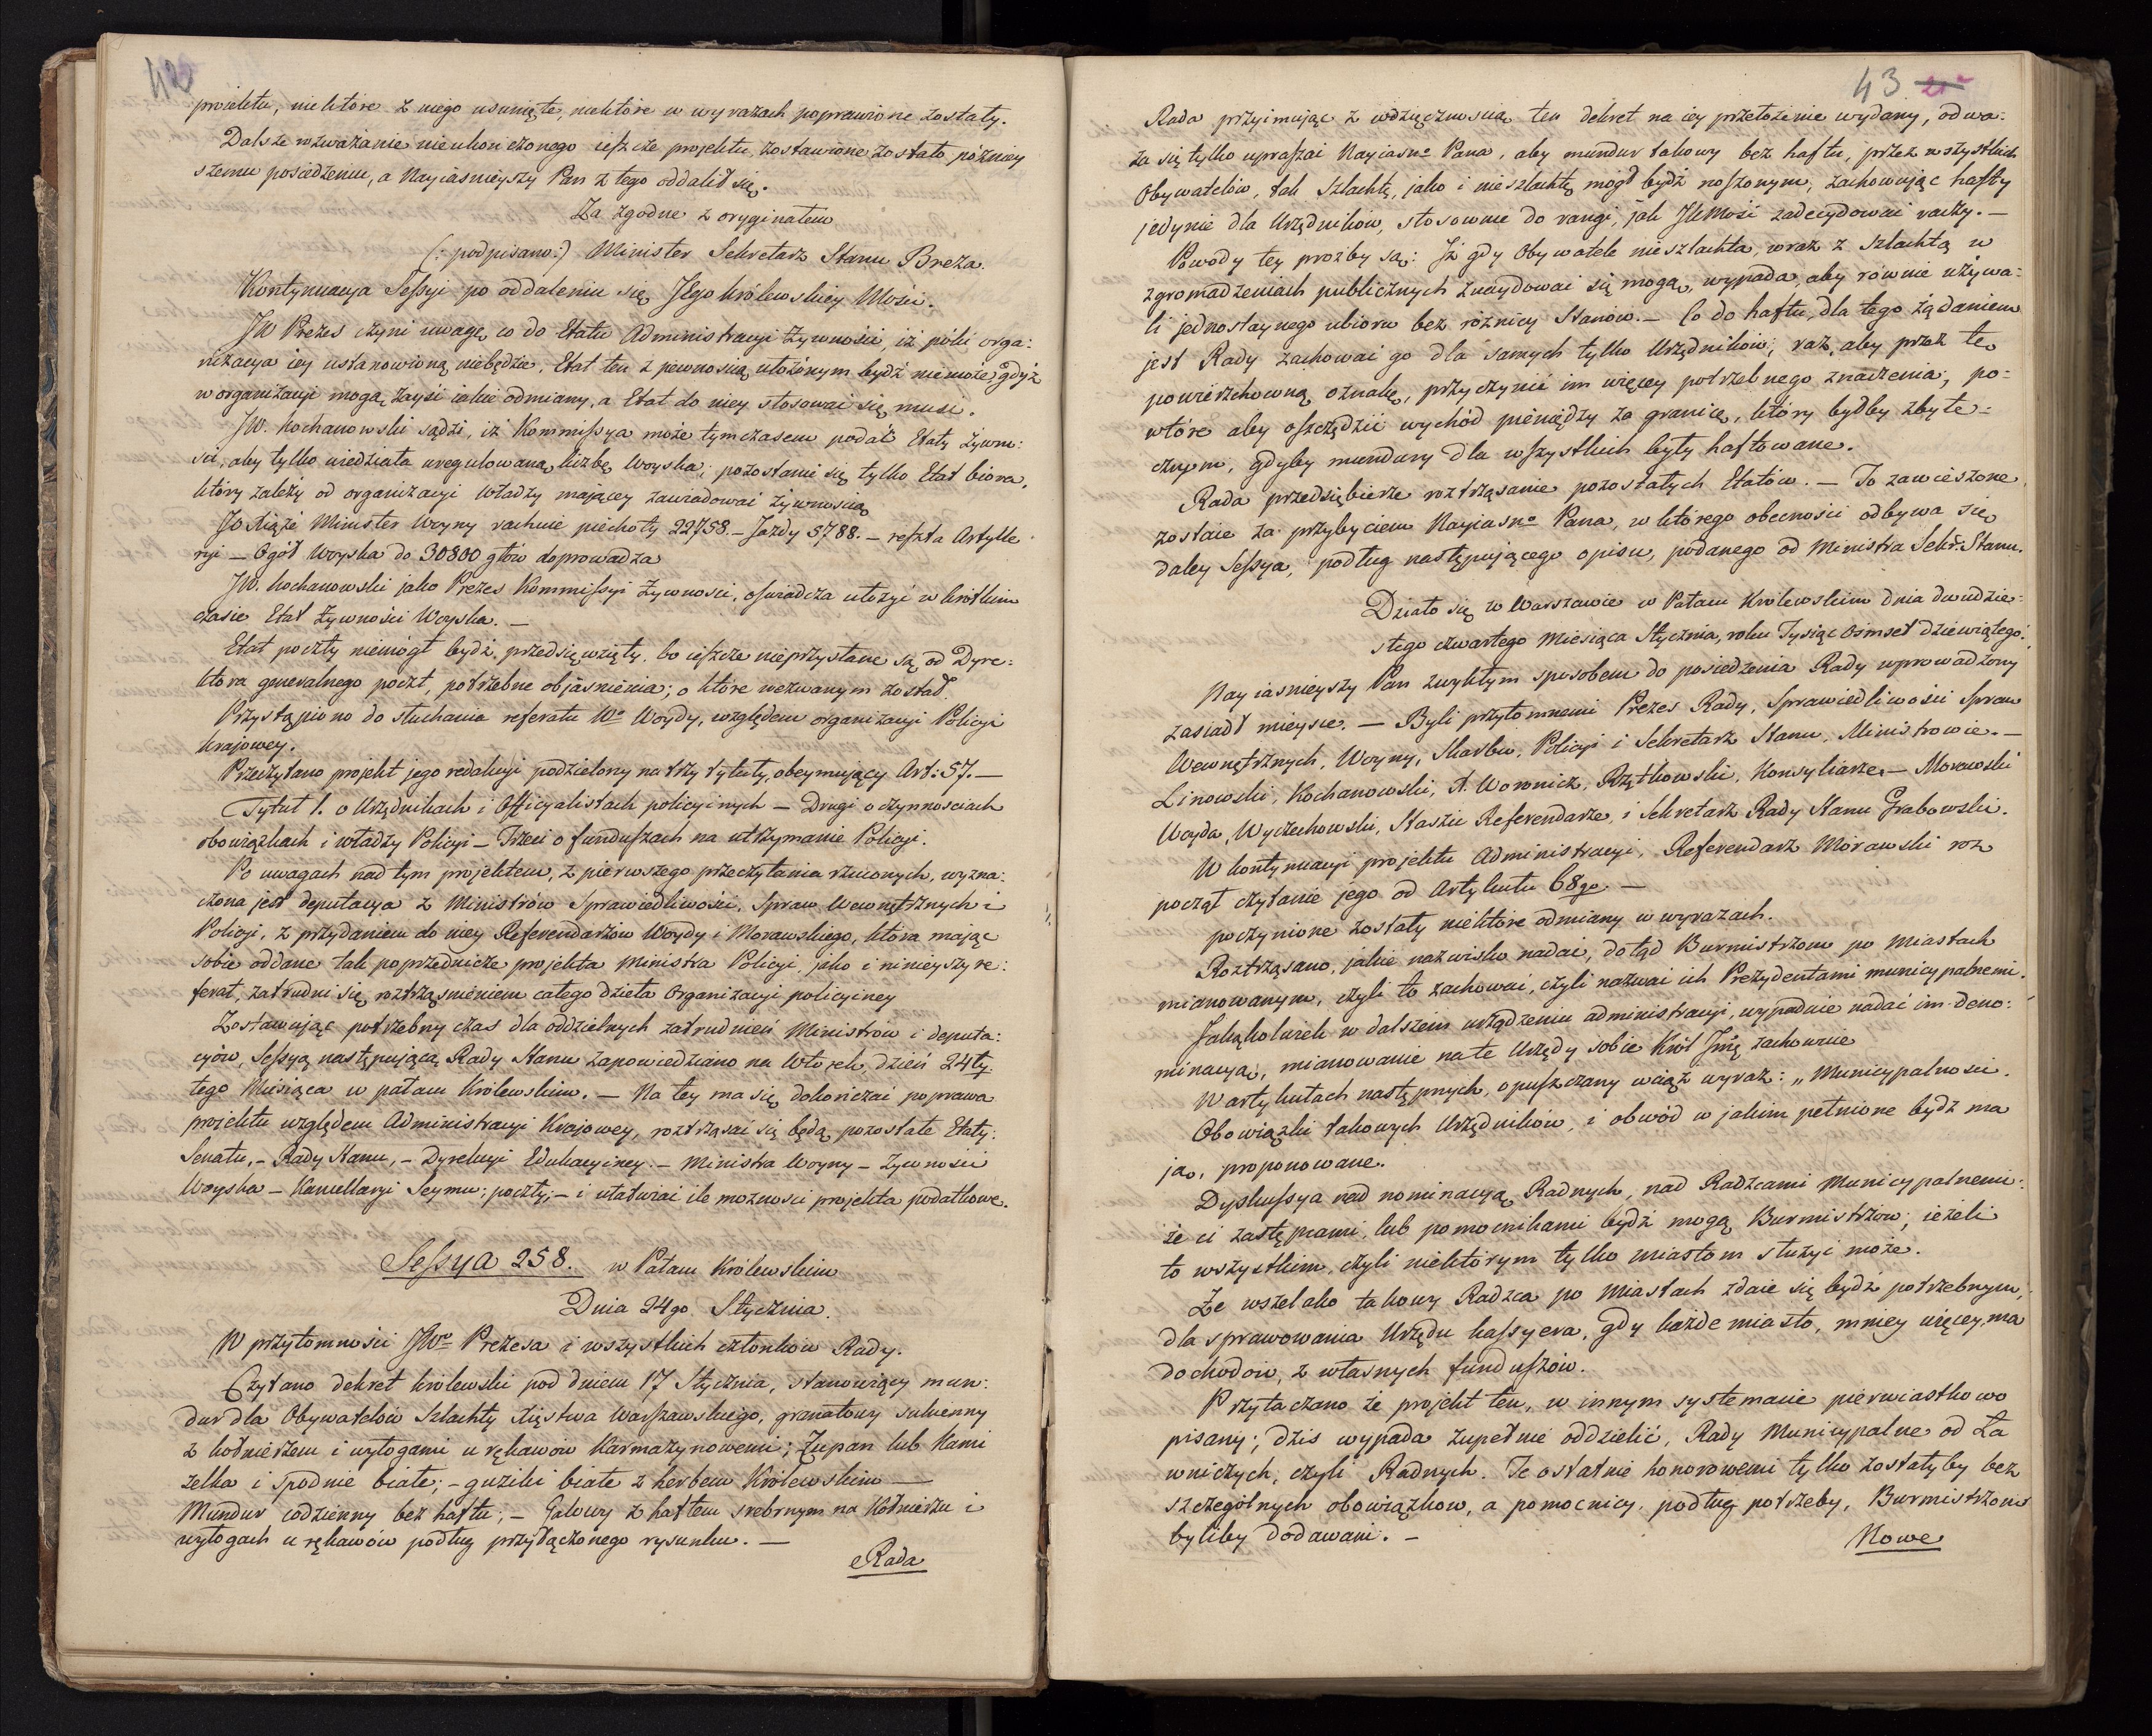 42
projektu, niektóre z niego usunięte, niektóre w wyrazach poprawione zostały.
Dalsze rozważanie nieukończonego ieszcze projektu, zostawione zostało, poźniey
szemu posiedzeniu, a Nayiaśnieyszy Pan z tego oddalił się.
Za zgodne z oryginałem
(: podpisano:) Minister Sekretarz Stanu Breza.
Kontynuacya Sessyi po oddaleniu się JEgo Królewskiey Mości.
JW Prezes czyni uwagę, co do Etatu Administracyi Żywności, iż póki orga:
nizacya iey ustanowioną niebędzie, Etat ten z pewnością ułożonym bydź niemoże, gdyż
w organizacyi mogą zayść iakie odmiany, a Etat do niey stosować się musi.
JW. Kochanowski sądzi, iż Kommissya może tymczasem podać Etaty żywno:
ści, aby tylko wiedziała uregulowaną liczbę Woyska; pozostanie się tylko Etat biora,
który zależy od organizacyi Władzy maiącey zawiadować żywnością
JO Xiąże Minister Woyny rachuie piechoty 22758. – Jazdy 5788. – reszta Artylle
ryi – Ogół Woyska do 30800 głów doprowadza
JW. Kochanowski jako Prezes Kommissyi Żywności, oświadcza ułożyć w krótkim
czasie Etat Żywności Woyska. –
Etat poczty niemógł bydź przedsięwzięty, bo ieszcze nieprzysłane są od Dyre:
ktora generalnego poczt, potrzebne objaśnienia; o które wezwanym został.
Przystąpiono do słuchania referatu Wo Woydy, względem organizacyi Policyi
krajowey.
Przeczytano projekt jego redakcyi podzielony na trzy tytuły, obeymujący Art: 57. –
Tytuł 1. o Urzędnikach i Officyalistach policyinych – Drugi o czynnościach
obowiązkach i władzy Policyi – Trzeci o funduszach na utrzymanie Policyi.
Po uwagach nad tym projektem, z pierwszego przeczytania rzuconych, wyzna:
czona jest deputacya z Ministrów Sprawiedliwości, Spraw Wewnętrznych i
Policyi, z przydaniem do niey Referendarzów Woydy i Morawskiego, która mając
sobie oddane tak poprzednicze projekta Ministra Policyi jako i ninieyszy re:
ferat, zatrudni się roztrząśnieniem całego dzieła Organizacyi policyiney
Zostawując potrzebny czas dla oddzielnych zatrudnień Ministrów i deputa:
cyów, Sessyą następującą Rady Stanu zapowiedziano na Wtorek, dzień 24ty.
tego Miesiąca w pałacu Królewskim. – Na tey ma się dokończać poprawa
projektu względem Administracyi Krajowey, roztrząsać się będą pozostałe Etaty:
Senatu, – Rady Stanu, – Dyrekcyi Edukacyiney. – Ministra Woyny – Żywności
Woyska – Kancellaryi Seymu; poczty; – i ułatwiać ile możności projekta podatkowe.
Sessya 258. w Pałacu Królewskim
Dnia 24go Stycznia.
W przytomności JWo Prezesa i wszystkich członków Rady.
Czytano dekret królewski pod dniem 17 Stycznia, stanowiący mun:
dur dla Obywatelów Szlachty Xięstwa Warszawskiego, granatowy sukienny
z kołnierzem i wyłogami u rękawów Karmazynowemi; Żupan lub Kami
zelka i spodnie białe; – guziki białe z herbem Królewskim –
Mundur codzienny bez haftu; – Galowy z haftem srebrnym na Kołnierzu i
wyłogach u rękawów podług przyłączonego rysunku. –
Rada
43
Rada przyimując z wdzięcznością ten dekret na iey przełożenie wydany, odwa:
ża się tylko upraszać Nayiasno Pana, aby mundur takowy bez haftu, przez wszystkich
Obywatelów, tak Szlachtę, jako i nieszlachtę mógł bydź noszonym, zachowując hafty
jedynie dla Urzędników, stosownie do rangi, jak JKMość zadecydować raczy. –
Powody tey prozby są: Iż gdy Obywatele nieszlachta, wraz z Szlachtą w
zgromadzeniach publicznych znaydować się mogą, wypada, aby równie używa:
li jednostaynego ubioru bez różnicy Stanów. – Co do haftu, dla tego żądaniem
jest Rady zachować go dla samych tylko Urzędników; raz, aby przez tę
powierzchowną oznakę, przyczynić im więcey potrzebnego znaczenia; po=
wtóre aby oszczędzić wychód pieniędzy za granicę, który byłby zbyte=
cznym, gdyby mundury dla wszystkich były haftowane.
Rada przedsiębierze roztrząsanie pozostałych Etatów. – To zawieszone
zostaie za przybyciem Nayiasno Pana, w którego obecności odbywa się
daley Sessya, podług następującego opisu, podanego od Ministra Sekr: Stanu.
Działo się w Warszawie w Pałacu Królewskim dnia dwudzie=
stego czwartego Miesiąca Stycznia, roku Tysiąc Ośmset dziewiątego.
Nayiaśnieyszy Pan zwykłym sposobem do posiedzenia Rady wprowadzony
zasiadł mieysce. – Byli przytomnemi Prezes Rady, Sprawiedliwości Spraw
Wewnętrznych, Woyny, Skarbu, Policyi i Sekretarz Stanu, Ministrowie. –
Linowski, Kochanowski, X. Woronicz, Rzętkowski, Konsyliarze. – Morawski
Woyda, Wyczechowski, Staszic Referendarze, i Sekretarz Rady Stanu Grabowski.
W kontynuacyi projektu Administracyi, Referendarz Morawski roz
począł czytanie jego od Artykułu 68go. –
poczynione zostały niektóre odmiany w wyrazach.
Roztrząsano, jakie nazwisko nadać, dotąd Burmistrzom po miastach
mianowanym, czyli to zachować, czyli nazwać ich Prezydentami municypalnemi.
Jakąkolwiek w dalszém urządzeniu administracyi, wypadnie nadać im deno:
minacyą, mianowanie na te Urzędy sobie Król Jmść zachowuie
W artykułach następnych, opuszczany wciąż wyraz: „ Municypalności.
Obowiązki takowych Urzędników, i obwód w jakim pełnione bydź ma
ją, proponowane.
Dyskussya nad nominacyą Radnych, nad Radzcami Municypalnemi:
że ci zastępcami, lub pomocnikami bydź mogą Burmistrzów; ieżeli
to wszystkim, czyli niektórym tylko miastom służyć może.
Że wszelako takowy Radzca po miastach zdaie się bydź potrzebnym,
dla sprawowania Urzędu kassyera, gdy każde miasto, mniey więcey, ma
dochodów, z własnych funduszów.
Przytaczano że projekt ten, w innym systemacie pierwiastkowo
pisany; dziś wypada zupełnie oddzielić, Rady Municypalne od Ła
wniczych, czyli Radnych. Te ostatnie honorowemi tylko zostałyby bez
szczególnych obowiązków, a pomocnicy, podług potrzeby, Burmistrzom
byliby dodawani. –
Nowe